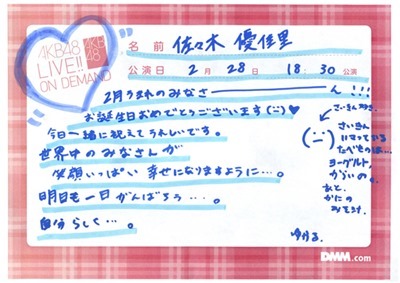 AKB48
LIVE!!
ON DEMAND
AKB
48
名前 佐々木 優佳里
公演日 2月 28日 18:30公演
2月うまれのみなさーーーーん!!!
お誕生日おめでとうございます(ニ)♥
今日一緒に祝えてうれしいです。
世界中のみなさんが
笑顔いっぱい 幸せになりますように…。
明日も一日がんばろう…。
自分らしく…。
さいきん
ハマっている
たべものは…
ヨーグルト。
からいの。
あと、
かたの
ゆかる。
DMM.com